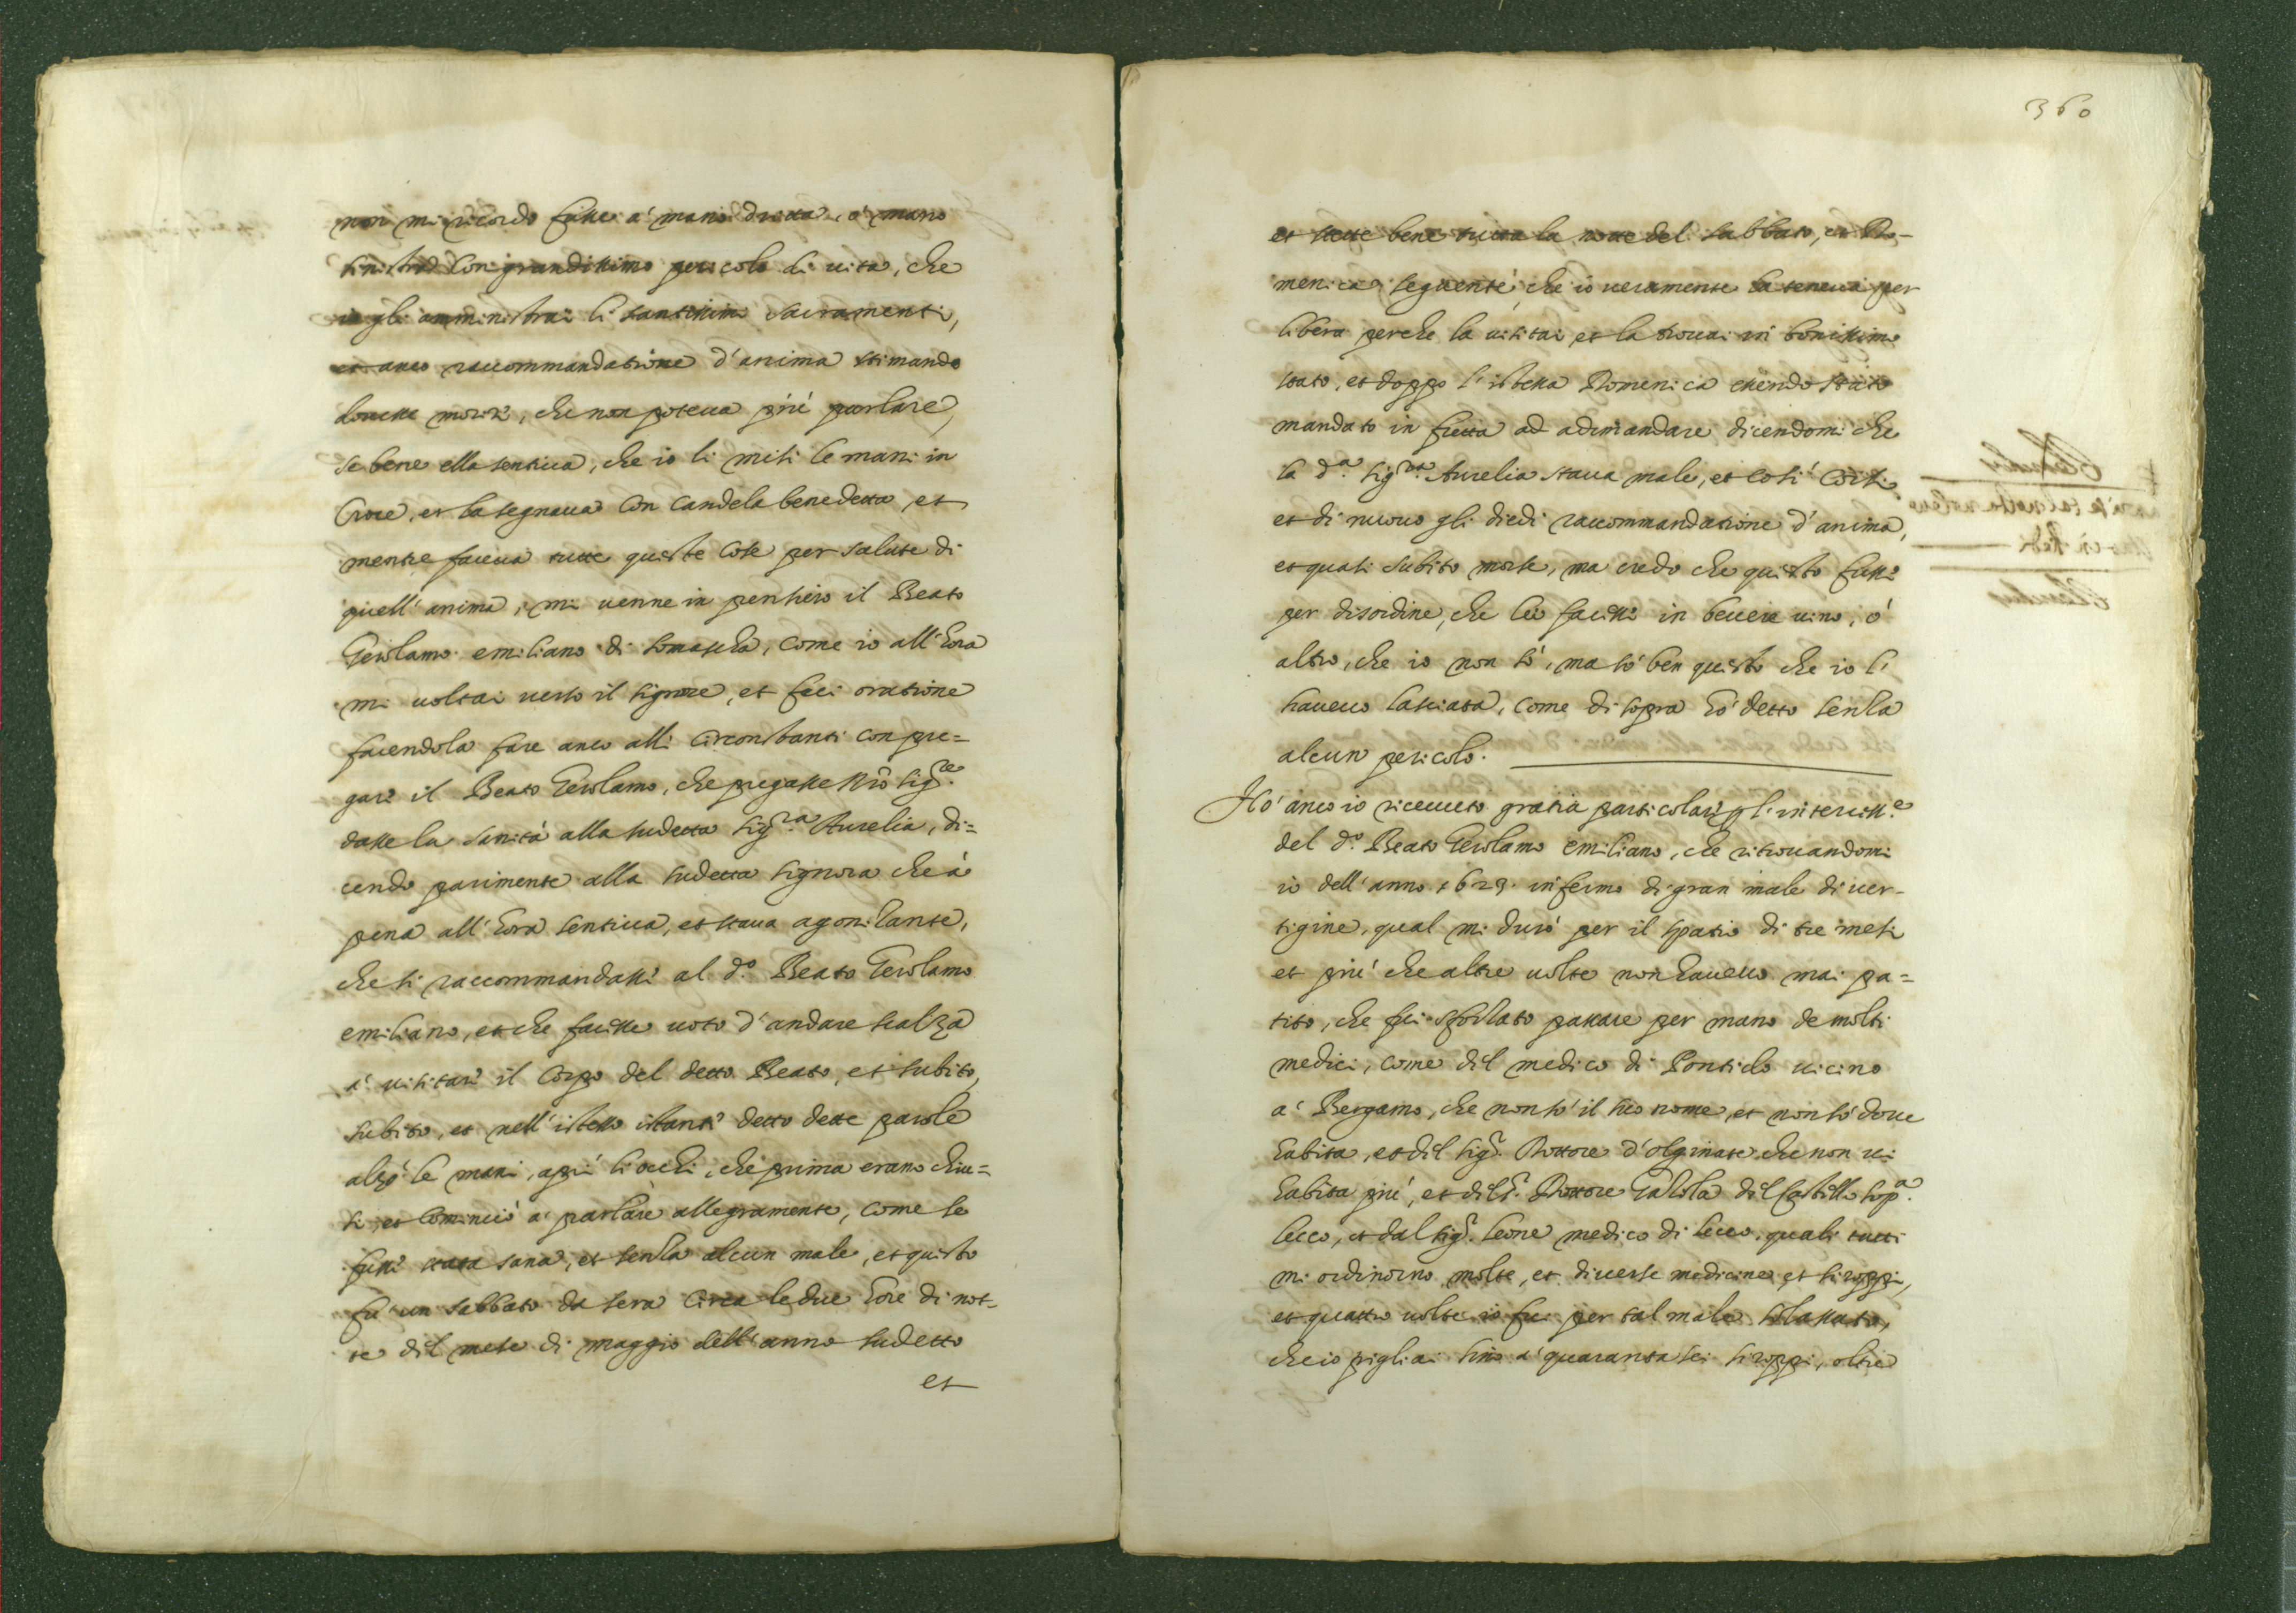 non mi ricordo fusse a' mano dritta, o' mano
sinistra con grandissimo pericolo di uita, che
io gli amministrai li santissimi sacramenti,
et anco raccommandatione d'anima stimando
douesse morir, che non poteua più parlare,
se bene ella sentiua, che io li misi le mani in
Croce, et la segnaua con candela benedetta, et
mentre faceua tutte queste cose per salute di
quell'anima, mi uenne in pensiero il Beato
Gerolamo emiliano di somascha, come io all'hora
mi uoltai uerso il signore, et feci oratione
facendola fare anco alli circonstanti con pre=
gare il Beato Gerolamo, che pregasse Nro sig.re
dasse la sanità alla sudetta sig.ra Aurelia, di=
cendo parimente alla sudetta signora che à
pena all'hora sentiua, et staua agonizante,
che si raccommandasse al d.o Beato Gerolamo
emiliano, et che facesse uoto d'andare scalza
a' uisitare il Corpo del detto Beato, et subito,
subito, et nell'istesso istante detto dette parole
alzò le mani, aprì li occhi, che prima erano chiu=
si, et cominciò a' parlare allegramente, come se
fusse stata sana, et senza alcun male, et questo
fu' un sabbato da sera circa le due hore di not-
te del mese di maggio dell'anno sudetto
et
360
et stette bene tutta la notte del sabbato, et Do-
menica seguente, che io ueramente la teneua per
libera perche la uisitai et la trouai in bonissimo
stato, et doppo l'istessa Domenica essendo stato
mandato in fretta ad adimandare dicendomi che
la d.a sig.ra Aurelia staua male, et così corsi
et di nuouo gli diedi raccommandatione d'anima,
et quasi subito morse, ma credo che questo fusse
per disordine, che lei facesse in beuere uino, ò
altro, che io non sò, ma sò ben questo che io l'
haueuo lasciata, come di sopra hò detto senza
alcun pericolo.
Hò anco io riceuuto gratia particolare p l'intercess.e
del d.o Beato Gerolamo emiliano, che ritrouandomi
io dell'anno 1623. infermo di gran male di uer-
tigine, qual mi durò per il spatio di tre mesi
et più che altre uolte non haueuo mai pa=
tito, che fui sforzato passare per mano de molti
medici, come del medico di Pontida uicino
a' Bergamo, che non sò il suo nome, et non sò doue
habita, et del sig.r Dottore d'olginate che non ui
habita più, et del s.r Dottore del Castello sop.a
lecco, et dal sig.r leone medico di lecco, quali tutti
mi ordinorno molte, et diuerse medicine, et siroppi,
et quattro uolte io fui per tal male salassato,
che io pigliai sino a' quaranta sei siroppi, oltre